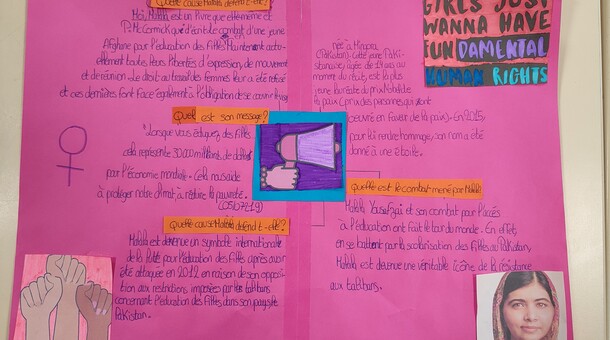 Quelle cause Malala défend t-elle?
Moi, Malala est un livre que elle même et
P. McCormick
combat d'une jeune
Afghane pour l'éducation des filles. Maintenant
toutes leurs libertés d'expression, de mouvement
et de réunion. Le droit au travail des femmes leur a été refusé
et ces dernières font face également à l'obligation de se couvrir
Quel est son message?
"Lorsque vous éduquez des filles
cela représente 30 000 milliards de dollars
pour l'économie mondiale. Cela nous aide
à protéger notre climat à réduire la pauvreté.
Quelle cause Malala défend t-elle?
Malala est devenue un symbole internationale
de la lutte pour l'éducation des filles après avoir
été attaquée en 2012 en raison de son oppo-
tion aux restrictions imposées par les talibans
concernant l'éducation des filles dans son pays le
Pakistan.
GIRLS JUST
WANNA HAVE
FUN DAMENTAL
HUMAN RIGHTS
née à Mingora
(Pakistan). Cette jeune Paki-
stanaise, âgée de
ans au
moment du
est la plus
jeune lauréate du prix Nobel de
la paix (prix des personnes qui ont
oeuvré en faveur de la paix). En 2015,
pour lui rendre hommage, son nom a été
donné à une étoile.
quelle est le combat mené par Malala
Malala Yousafzai et son combat pour l'accès
à l'éducation ont fait le tour du monde. En effet,
en se battant pour la scolarisation des filles au Pakistan,
Malala est devenue une véritable icône de la résistance
aux talibans.